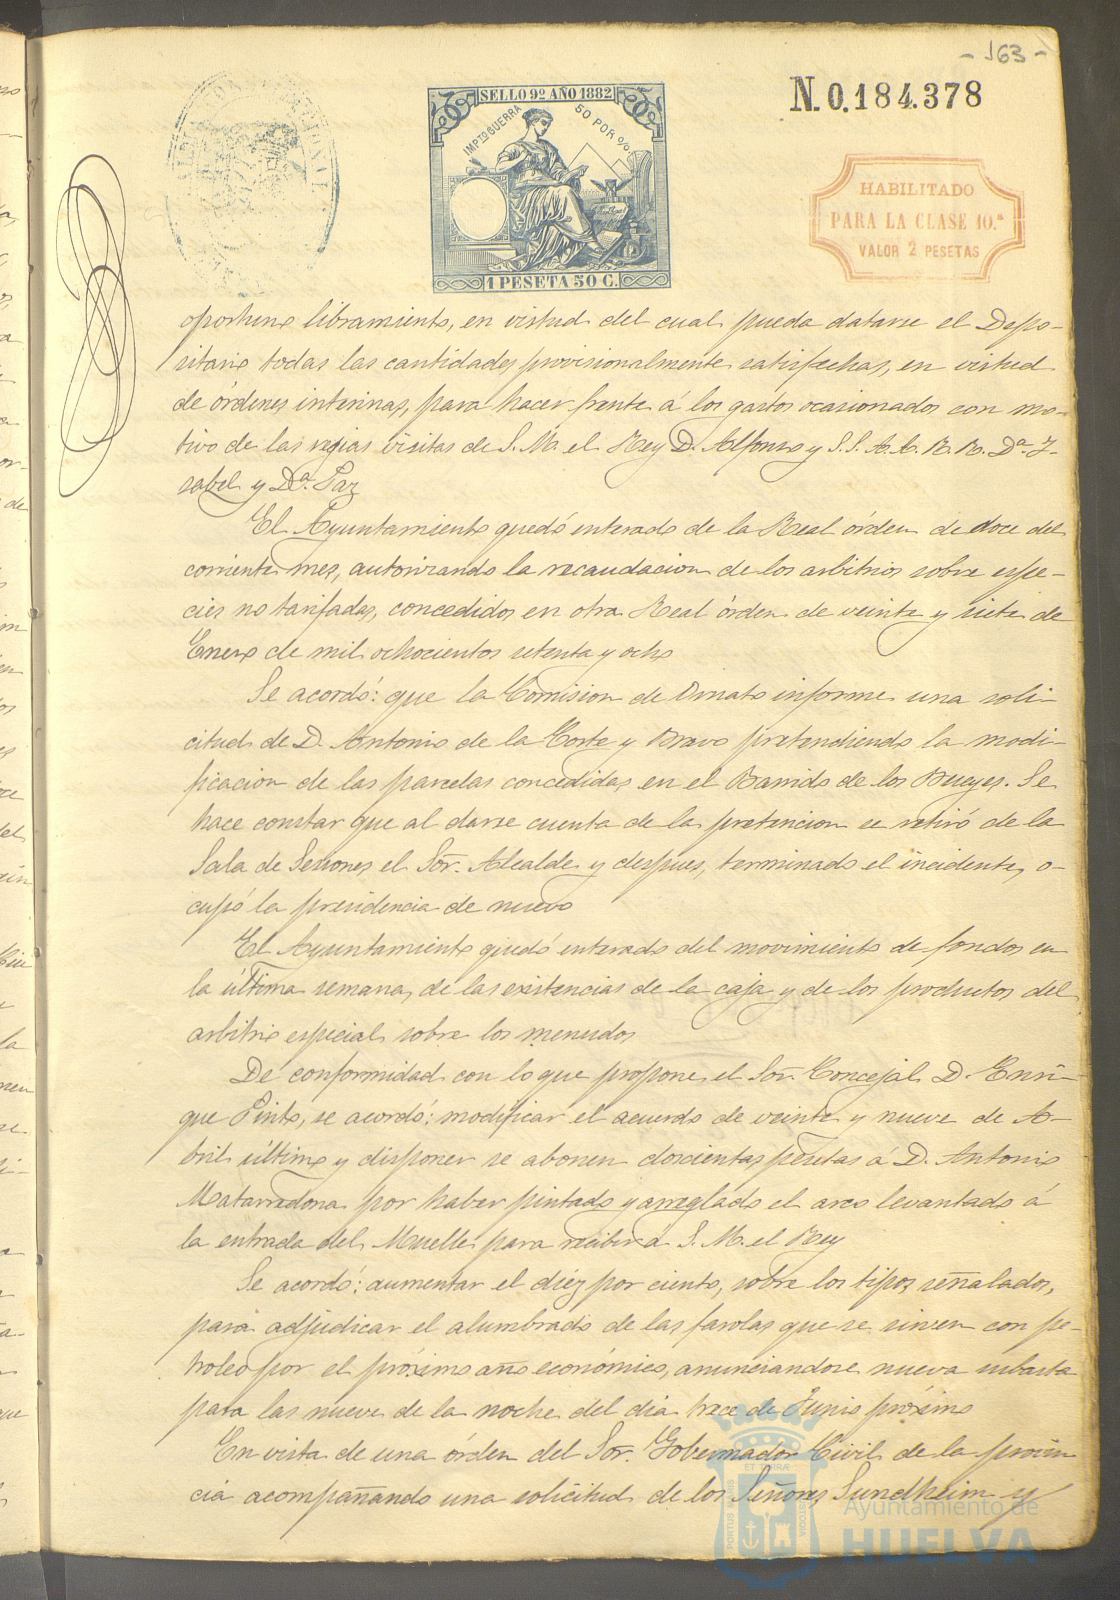 - 163 -
N. 0.184.378
SELLO 9º AÑO 1882
IMPTO GUERRA 50 POR %
1 PESETA 50 C.
HABILITADO
PARA LA CLASE 10.ª
VALOR 2 PESETAS
oportuno libramiento, en virtud del cual pueda datarse el Depo-
sitario todas las cantidades provisionalmente satisfechas, en virtud
de órdenes interinas, para hacer frente á los gastos ocasionados con mo-
tivo de las regias visitas de S. M. el Rey D. Alfonso y S. S. A. A. R. R. Dª I-
sabel y Dª. Paz
El Ayuntamiento quedó enterado de la Real órden de doce del
corriente mes, autorizando la recaudacion de los arbitrios sobre espe-
cies no tarifadas, concedidos en otra Real órden de veinte y siete de
Enero de mil ochocientos setenta y ocho
Se acordó: que la Comision de Ornato informe una soli-
citud de D. Antonio de la Corte y Bravo pretendiendo la modi-
ficacion de las parcelas concedidas en el Barrido de los Bueyes. Se
hace constar que al darse cuenta de la pretencion se retiró de la
Sala de Sesiones el Sor. Alcalde y despues, terminado el incidente, o-
cupó la presidencia de nuevo
El Ayuntamiento quedó enterado del movimiento de fondos en
la última semana, de las existencias de la caja y de los productos del
arbitrio especial sobre los menudos
De conformidad con lo que propone el Sor. Concejal D. Enri-
que Pinto, se acordó: modificar el acuerdo de veinte y nueve de A-
bril último y disponer se abonen doscientas pesetas á D. Antonio
Matarredona por haber pintado y arreglado el arco levantado á
la entrada del Muelle para recibir á S. M. el Rey
Se acordó: aumentar el diez por ciento, sobre los tipos señalados,
para adjudicar el alumbrado de las farolas que se sirven con pe-
troleo por el próximo año económico, anunciandose nueva subasta
para las nueve de la noche del dia trece de Junio próximo
En vista de una órden del Sor. Gobernador Civil de la provin
cia acompañando una solicitud de los Señores Sundheim y
Ayuntamiento de
HUELVA